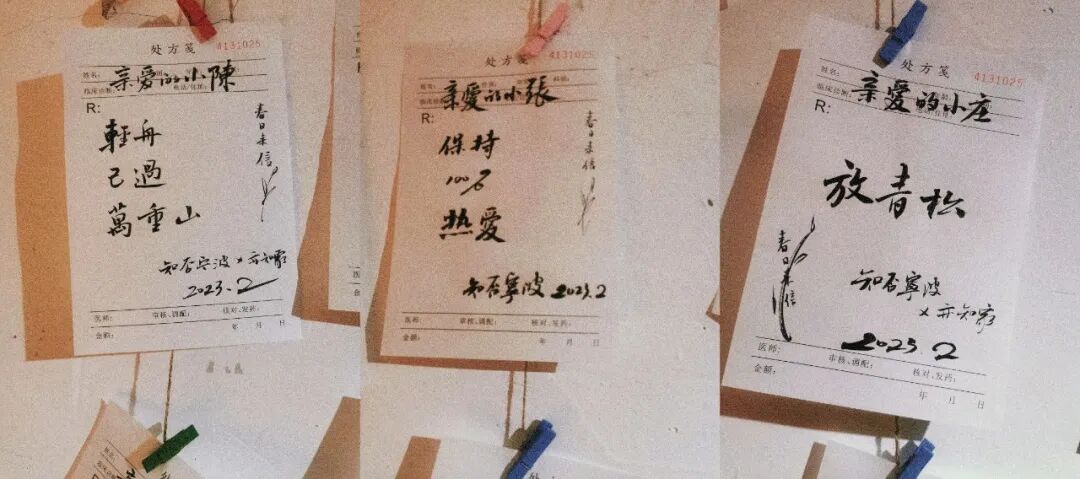 处方笺 4131025
姓名:
亲爱的小陳
临床诊断:
R:
輕舟
已過
萬重山
春日来信
知否宁波 × 亦知
2023.2
医师: 审核、调配: 核对、发药:
金额: 年 月 日
处方笺 4131025
姓名:
亲爱的小張
R:
保持
100%
热爱
春日来信
知否寧波 2023.2
医师: 审核、调配: 核对、发药:
金额: 年 月 日
处方笺 4131025
姓名:
亲爱的小庄
临床诊断:
R:
放青松
春日来信
知否寧波
× 亦知
2023.2
医师: 审核、调配: 核对、发药:
金额: 年 月 日
处